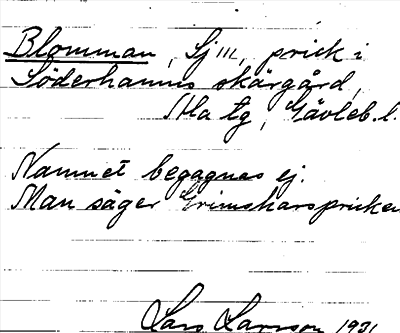 Blomman, Sj III, prick i
Söderhamns skärgård,
Hla tg, Gävleb. l.
Namnet begagnas ej.
Man säger Grimskärspricken
Lars Larsson 1931